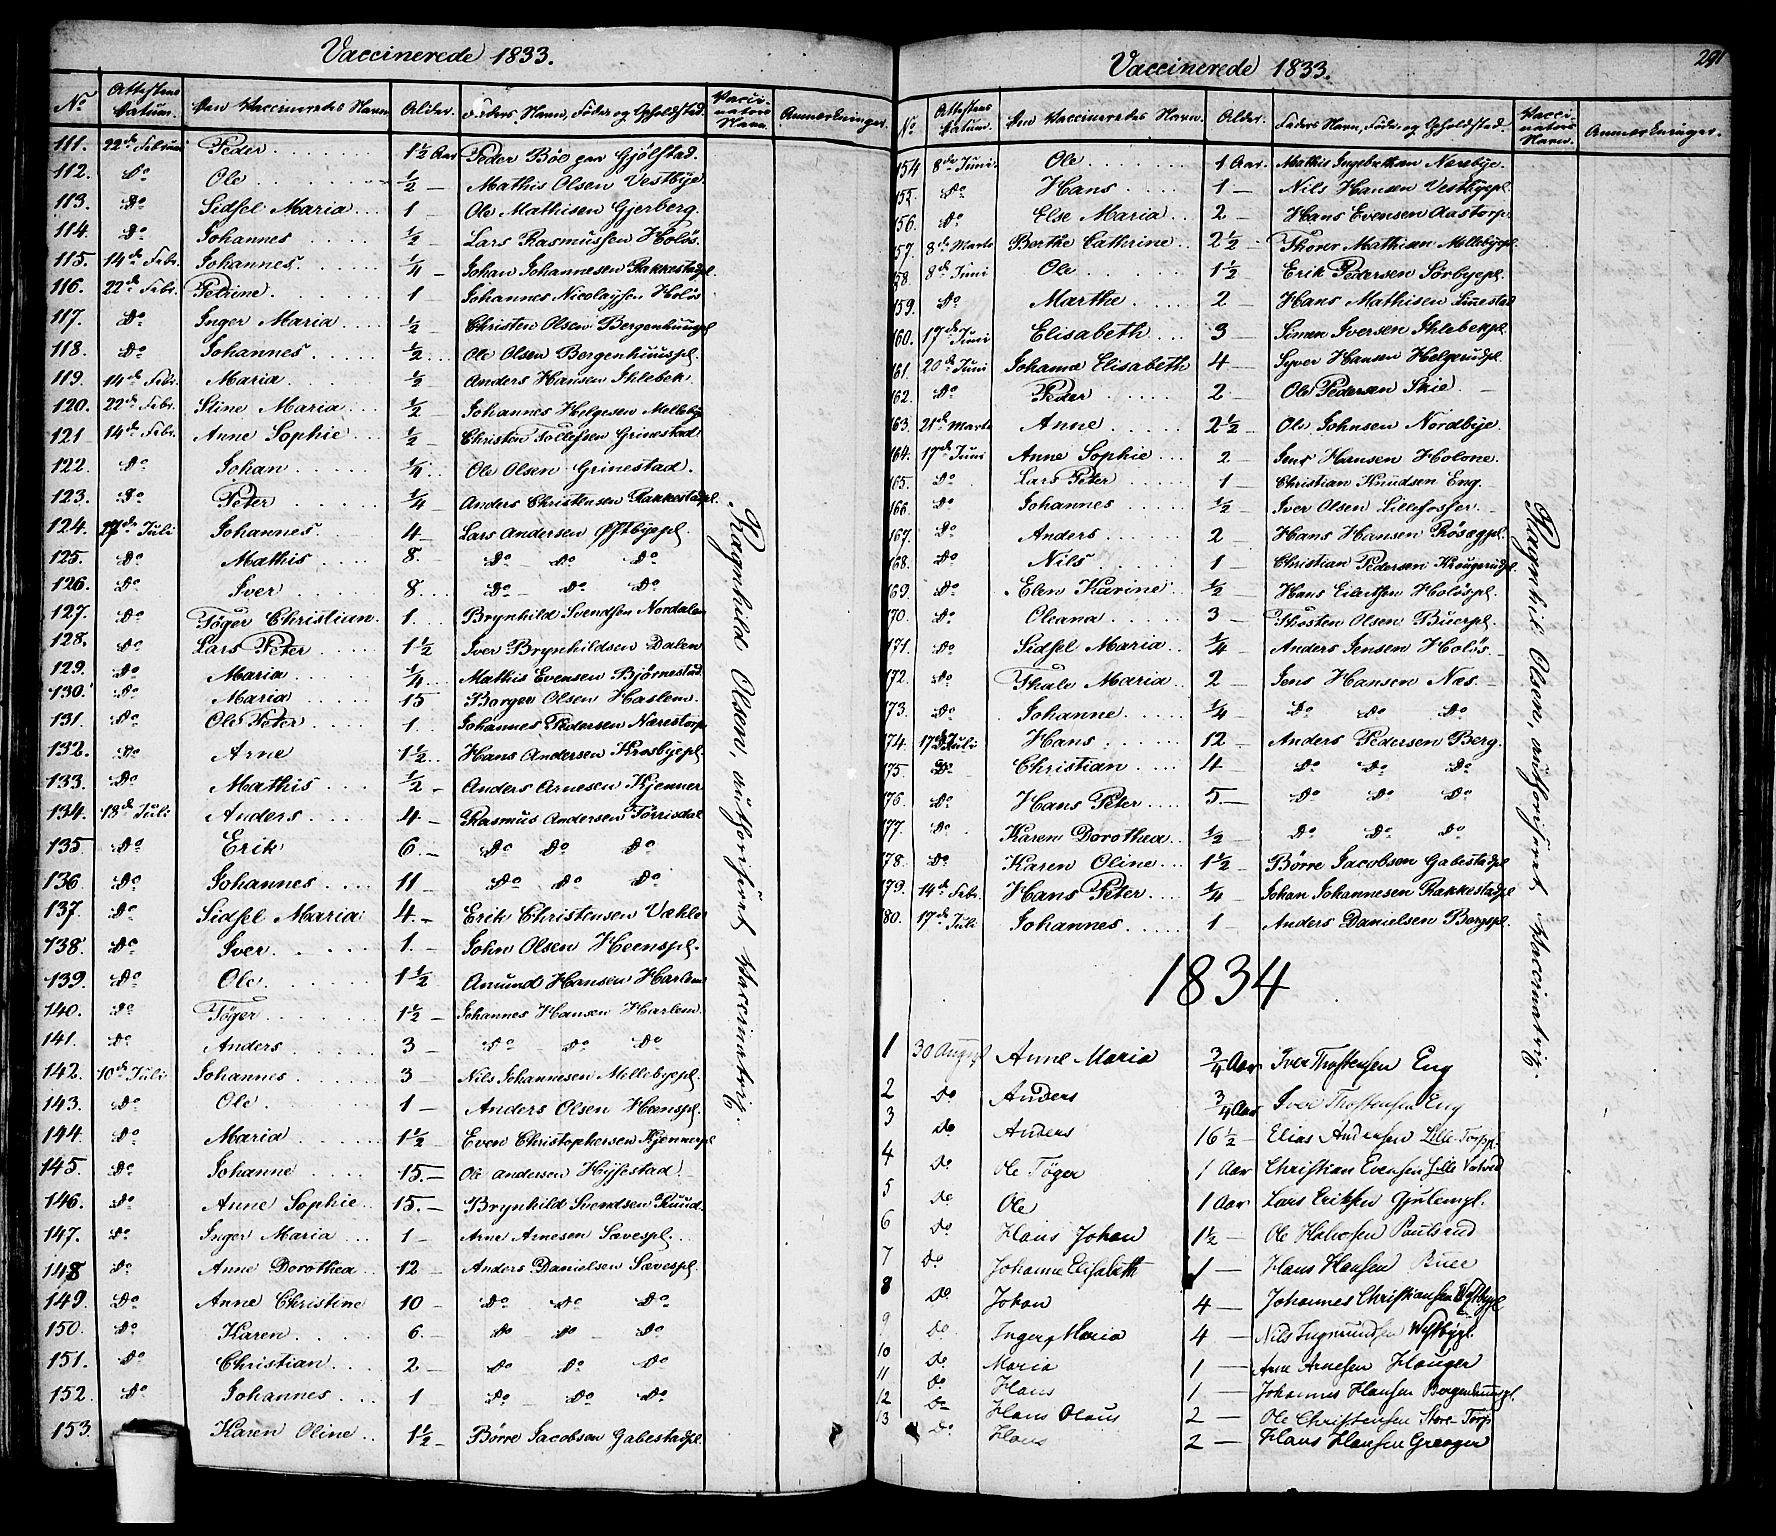 Vaccinerede 1833.
No Attestens Datum. Den Vaccineredes Navn Alder. Faders Navn, Föder og Opholdsted. Vacci- nators Navn. Anmærkninger.
111. 22de Februar Peder 1½ Aar Peder Böe paa Gjølstad.
112. Do Ole ½ — Mathis Olsen Vestbye.
113. Do Sidsel Maria 1 — Ole Mathisen Gjerberg.
114. Do Johannes ½ — Lars Rasmussen Holös.
115. 14de Febr. Johannes ¼ — Johan Johannesen Rakkestadpl.
116. 22de Febr. Petrine 1 Johannes Nicolaysen Holös
117. Do Inger Maria ½ — Christen Olsen Bergenhuuspl.
118. Do Johannes ½ Ole Olsen Bergenhuuspl.
119. 14de Febr. Maria ½ — Anders Hansen Ihlebek
120. 22de Febr. Stine Maria ½ — Johannes Helgesen Mellebye
121 14de Febr. Anne Sophie ½ — Christen Tollefsen Grinestad
122. Do Johan ¼ Ole Olsen Grinestad.
123. Do Peter ¼ Anders Christensen Rakkestadpl.
124. 27de Juli Johannes 4 — Lars Andersen Østbyepl.
125. Do Mathis 8. — Do Do Do
126. Do Iver 8. — Do Do Do
127. Do Töger Christian. 1. Brynhild Svendsen Nordalen
128. Do Lars Peter 1½ Iver Brynhildsen Dalen
129. Do Maria ¼ Mathis Evensen Bjørnestad
130. Do Maria 15 Borger Olsen Haslem
131. Do Ole Peter 1. Johannes Pedersen Nærestorp
132. Do Arne 1½ Hans Andersen Krosbyepl.
133. Do Mathis ½ — Anders Arnesen Kjenner
134. 18de Juli Anders 4 — Rasmus Andersen Tørrisdal
135 Do Erik 6. — Do Do Do
136. Do Johannes 11 — Do Do Do
137. Do Sidsel Maria 4. — Erik Christensen Væhler
138. Do Iver 1. — John Olsen Heenspl.
139. Do Ole 1½ Amund Hansen Harlem
140. Do Töger 1½ — Johannes Hansen Harlem.
141. Do Anders 3 — Do Do Do
142. 10de Juli Johannes 3 — Nils Johannesen Mellebyepl.
143. Do Ole 1 — Anders Olsen Heenspl.
144. Do Maria 1½ — Even Christophersen Kjennerpl
145. Do Johanne 15. — Ole Andersen Hyssestad
146. Do Anne Sophie 15. — Brynhild Svendsen Ruud.
147. Do Inger Maria 1 — Arne Arnesen Sævespl.
148 Do Anne Dorothea 12 — Anders Danielsen Sævespl.
149. Do Anne Christine 10 — Do Do Do
150. Do Karen 6. — Do Do Do
151. Do Christian 2 — Do Do Do
152. Do Johannes 1 Do Do Do
153. Karen Oline 1½ — Börre Jacobsen Gabestadpl.
Ragnhild Olsen, authoriseret Vaccinatrix.
Vaccinerede 1833.
291
No Attestens Datum. Den Vaccineredes Navn. Alder. Faders Navn, Föde og Opholdsted. Vacci- nators Navn. Anmærkninger.
154 8de Juni. Ole 1 Aar. Mathis Ingebretsen Næsbye.
155. Do Hans 1 — Nils Hansen Vestbyepl.
156. Do Else Maria 2 — Hans Evensen Aastorp
157. 8de Marts Berthe Cathrine 2½ — Thorer Mathisen Mellebyepl
158. 8de Juni Ole 1½ Erik Pedersen Sørbyepl.
159. Do Marthe 2 — Hans Mathisen Linestad
160. 17de Juni Elisabeth 3 — Simen Iversen Ihlebekpl.
161. 20de Juni Johanne Elisabeth 4 — Syver Hansen Helgerudpl.
162. Do Peder 2 — Ole Pedersen Skie.
163. 21de Marts Anne 2½ — Ole Johnsen Nordbye.
164. 17de Juni Anne Sophie 2 — Jens Hansen Holone.
165. Do Lars Peter 1 Christian Knudsen Eng.
166. Do Johannes ½ — Iver Olsen Lillefosser.
167. Do Anders 2 — Hans Hansen Rösægpl.
168. Do Nils 1 — Christian Pedersen Krougerudpl.
169. Do Elen Karine ½ — Hans Eilertsen Holöspl.
170. Do Oleana 3 — Thosten Olsen Büerpl.
171. Do Sidsel Maria ¼ Anders Jensen Holös
172. Do Thale Maria 2 — Jens Hansen Næs
173. Do Johanne ¼ — Do Do Do
174. 17de Juli Hans 12 — Anders Pedersen Berg.
175. Do Christian 4 — Do Do Do
176. Do Hans Peter 5. — Do Do Do
177. Do Karen Dorothea ½ — Do Do Do
178. Do Karen Oline 1½ — Børre Jacobsen Gabestadpl
179. 14de Febr. Hans Peter ¼ Johan Johannesen Rakkestadpl
80. 17de Juli Johannes 1 Anders Danielsen Bergspl.
Ragnhil Olsen, authoriseret Vaccinatrix.
1834
1 30 August Anne Maria ¾ Aar Iver Thostensen Eng
2 Do Anders ¾ Aar Iver Thostensen Eng
3 Do Anders 16½ — Elias Andersen Lille-Torpp.
4 Do Ole Töger 1 Aar Christian Evensen Lille
5 Do Ole 1 Aar Lars Eriksen
6 Do Hans Johan 1½ — Ole Halvorsen Paulsrud
7 Do Johanne Elisabeth 1 — Hans Hansen Buee
8 Do Johan 4 — Johannes Christiansen Westbypl
9 Do Inger Maria 4 — Nils Ingmundsen Westbypl.
10 Do Maria 1 — Arne Arnesen Hauger
11 Do Hans 1 — Johannes Hansen Bergenhuuspl.
12 Do Hans Olaus 2 — Ole Christensen Store Torp
13 Do Hans 2 — Hans Hansen Greager